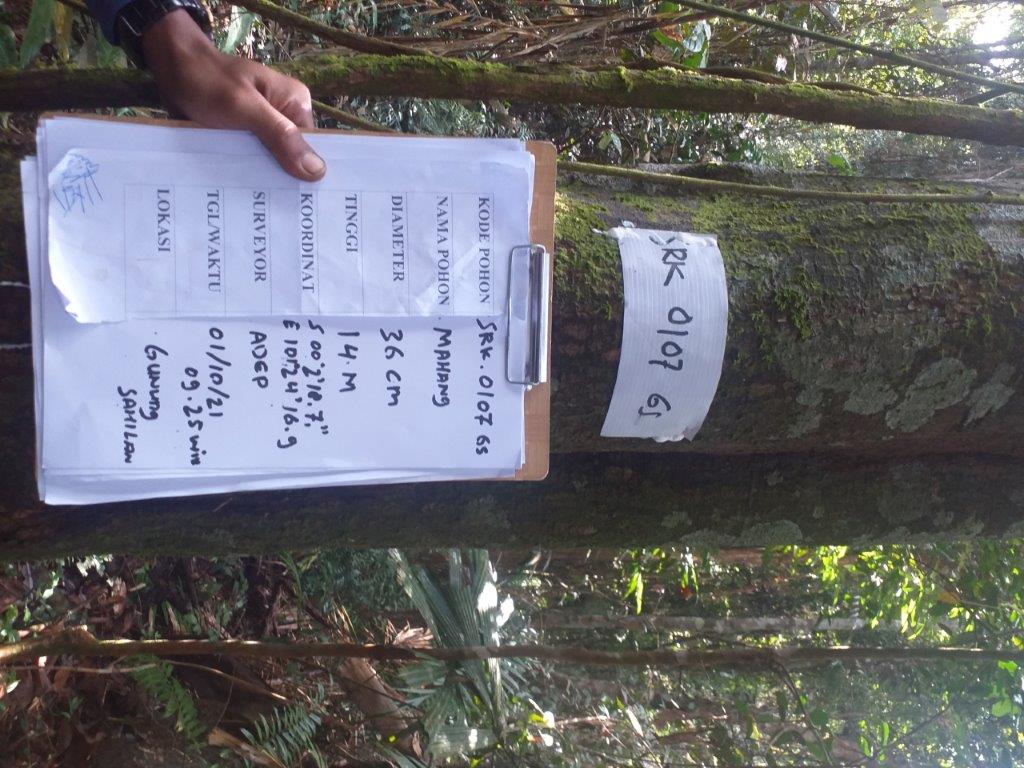 SRK 0107 GS
KODE POHON SRK. 0107 GS
NAMA POHON MAHANG
DIAMETER 36 cm
TINGGI 14 M
KOORDINAT S 00°2'18.7"
E 101°24'16.9
SURVEYOR ADEP
TGL/WAKTU 01/10/21
09.25 WIB
LOKASI GUNUNG
SAHILAN